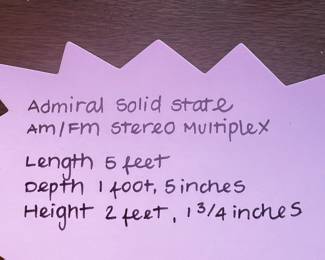 Admiral Solid State
AM/FM Stereo Multiplex
Length 5 feet
Depth 1 foot, 5 inches
Height 2 feet, 1 3/4 inches